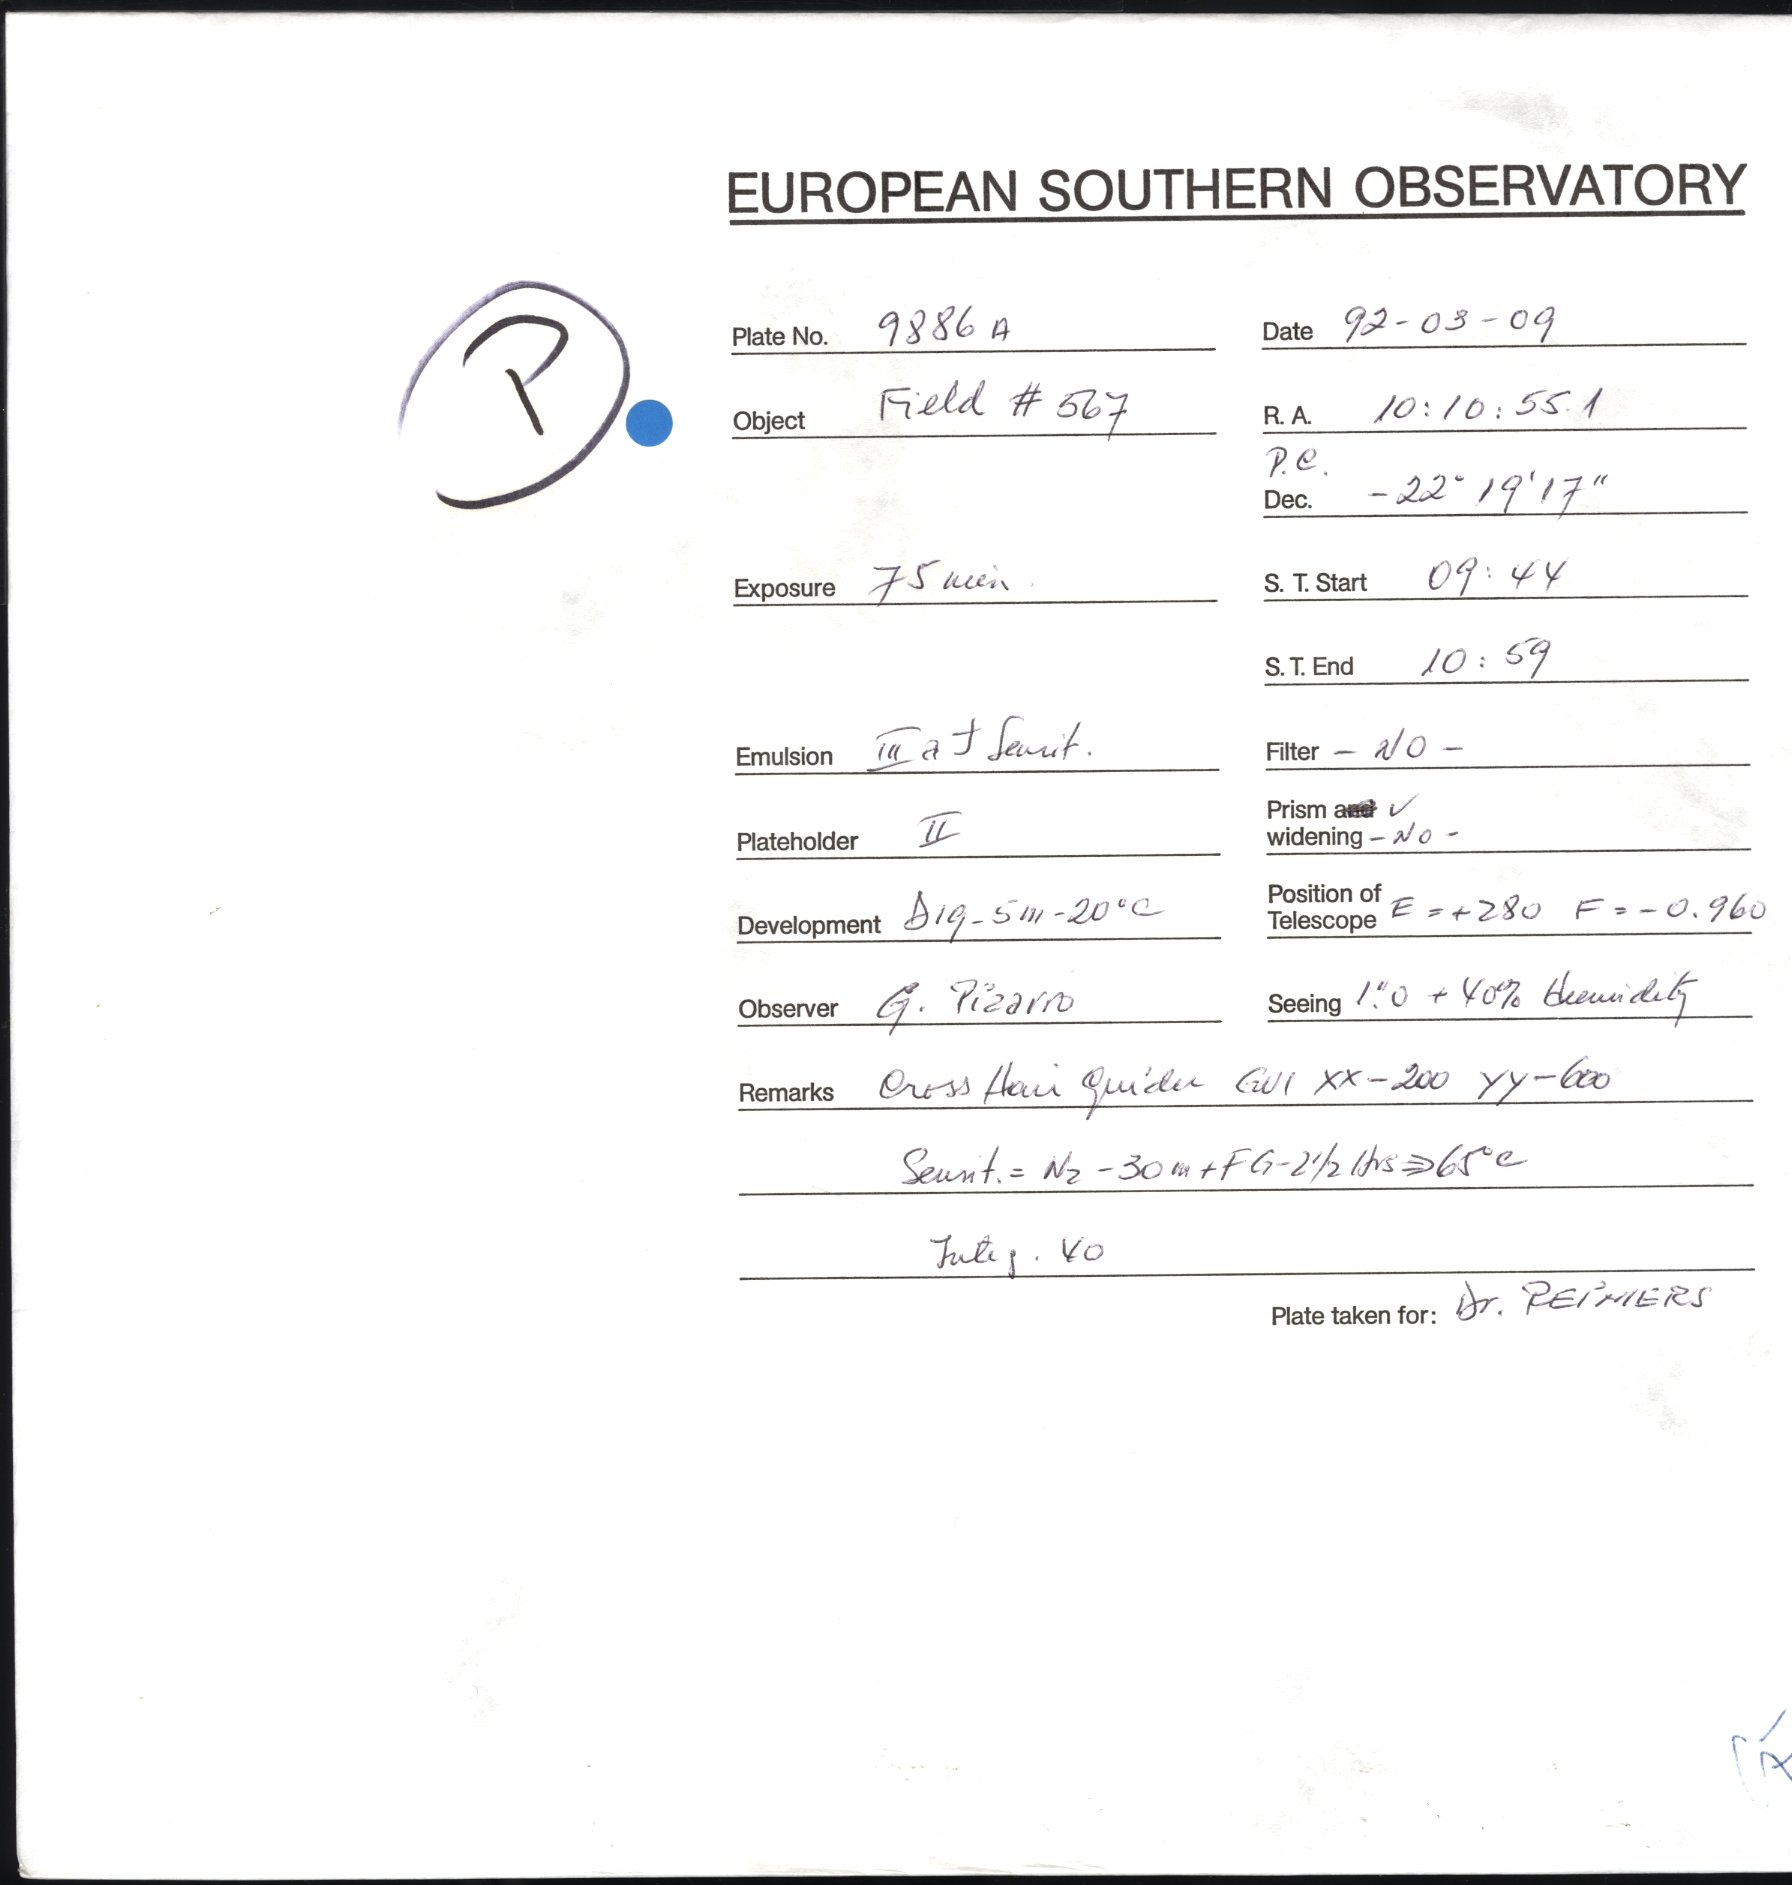 EUROPEAN SOUTHERN OBSERVATORY
P
Plate No. 9886 A
Date 92-03-09
Object Field # 567
R. A. 10:10:55.1
P.C.
Dec. -22° 19' 17"
Exposure 75 min.
S. T. Start 09:44
S. T. End 10:59
Emulsion III a J Sensit.
Filter - NO -
Plateholder II
Prism and ✓
widening - No -
Development D19-5m-20°C
Position of
Telescope E = +280 F = -0.960
Observer G. Pizarro
Seeing 1".0 + 40% Humidity
Remarks Cross Hair Guider GUI XX-200 YY-600
Sensit. = N2 -30m + FG-2 1/2 Hrs ⇒ 65°C
Integ. 40
Plate taken for: Dr. REIMERS